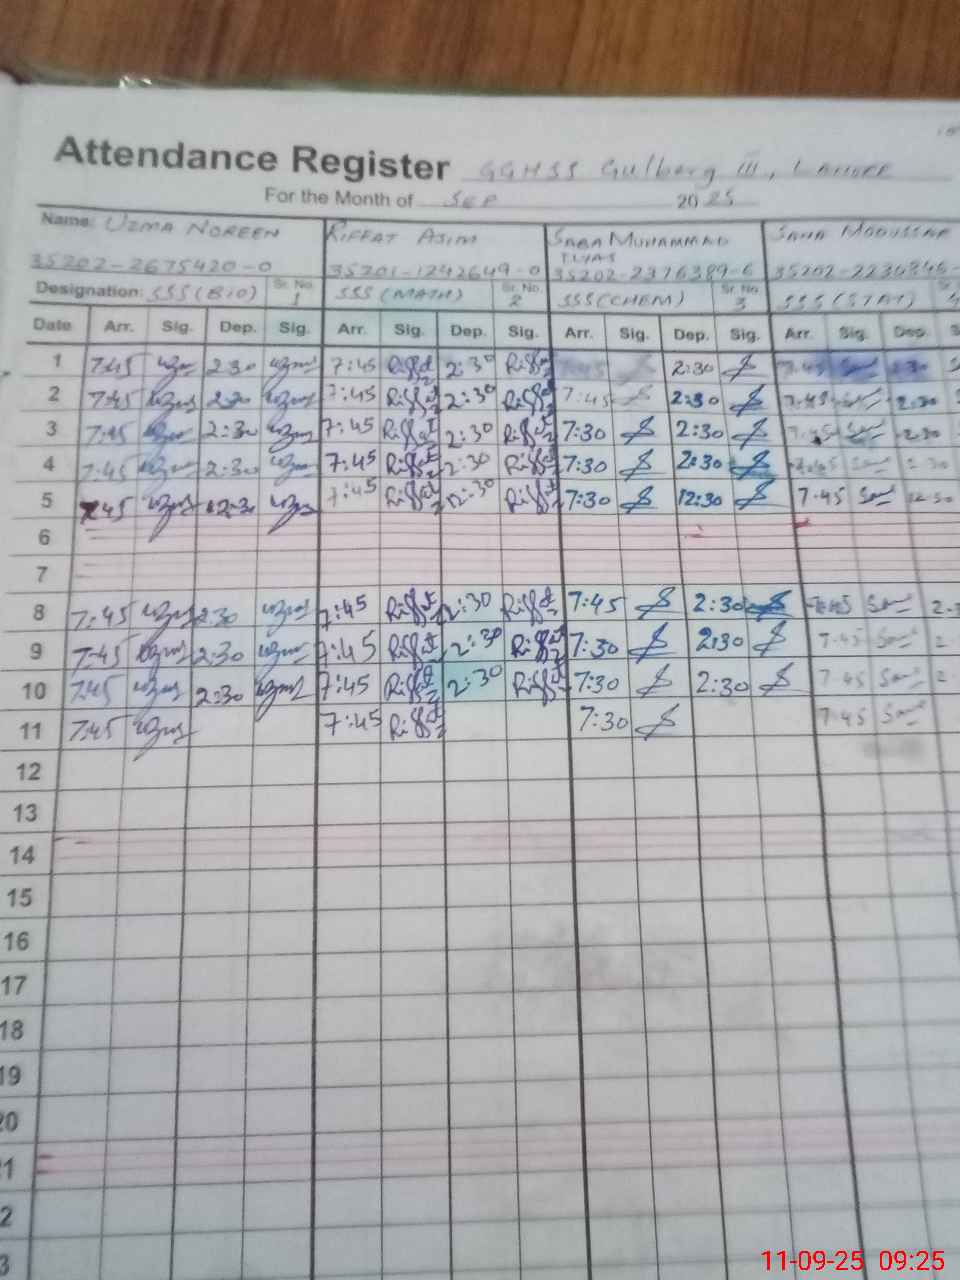 Attendance Register GGHSS Gulberg III, LAHORE
For the Month of SEP 2025
Name: UZMA NOREEN RIFFAT ASIM SABA MUHAMMAD ILYAS SANA MODUSSAR
35202-2675420-0 35201-1242649-0 35202-2376389-6
Designation: SSS (BIO) Sr. No. 1 SSS (MATH) Sr. No. 2 SSS (CHEM) Sr. No. 3 SSS (STAT)
Date Arr. Sig. Dep. Sig. Arr. Sig. Dep. Sig. Arr. Sig. Dep. Sig. Arr. Sig. Dep.
1 7:45 uzm 2:30 uzm 7:45 Riffat 2:30 Riffat 2:30 7:45 2:30
2 7:45 uzm 2:30 uzm 7:45 Riffat 2:30 Riffat 7:45 2:30 7:45 2:30
3 7:45 uzm 2:30 uzm 7:45 Riffat 2:30 Riffat 7:30 2:30 7:45 2:30
4 7:45 uzm 2:30 uzm 7:45 Riffat 2:30 Riffat 7:30 2:30 7:45 2:30
5 7:45 uzm 12:30 uzm 7:45 Riffat 12:30 Riffat 7:30 12:30 7:45 12:30
6
7
8 7:45 uzm 2:30 uzm 7:45 Riffat 2:30 Riffat 7:45 2:30 7:45
9 7:45 uzm 2:30 uzm 7:45 Riffat 2:30 Riffat 7:30 2:30 7:45
10 7:45 uzm 2:30 uzm 7:45 Riffat 2:30 Riffat 7:30 2:30 7:45
11 7:45 uzm 7:45 Riffat 7:30 7:45
12
13
14
15
16
17
18
19
20
21
2
3
11-09-25 09:25